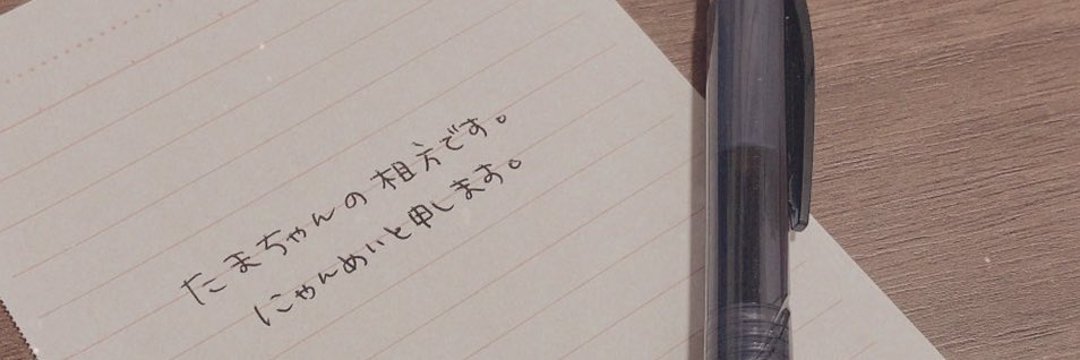 たまちゃんの相方です。
にゃんめいと申します。